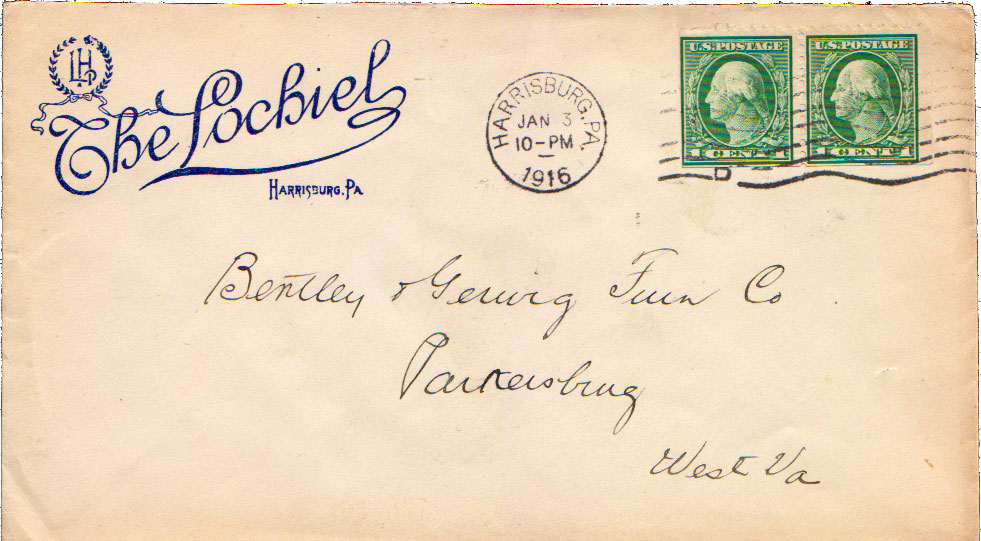 LH
The Lochiel
HARRISBURG, PA
HARRISBURG, PA.
JAN 3
10-PM
1916
D
U.S. POSTAGE
1 CENT 1
U.S. POSTAGE
1 CENT 1
Bentley & Gerwig Furn Co
Parkersburg
West Va